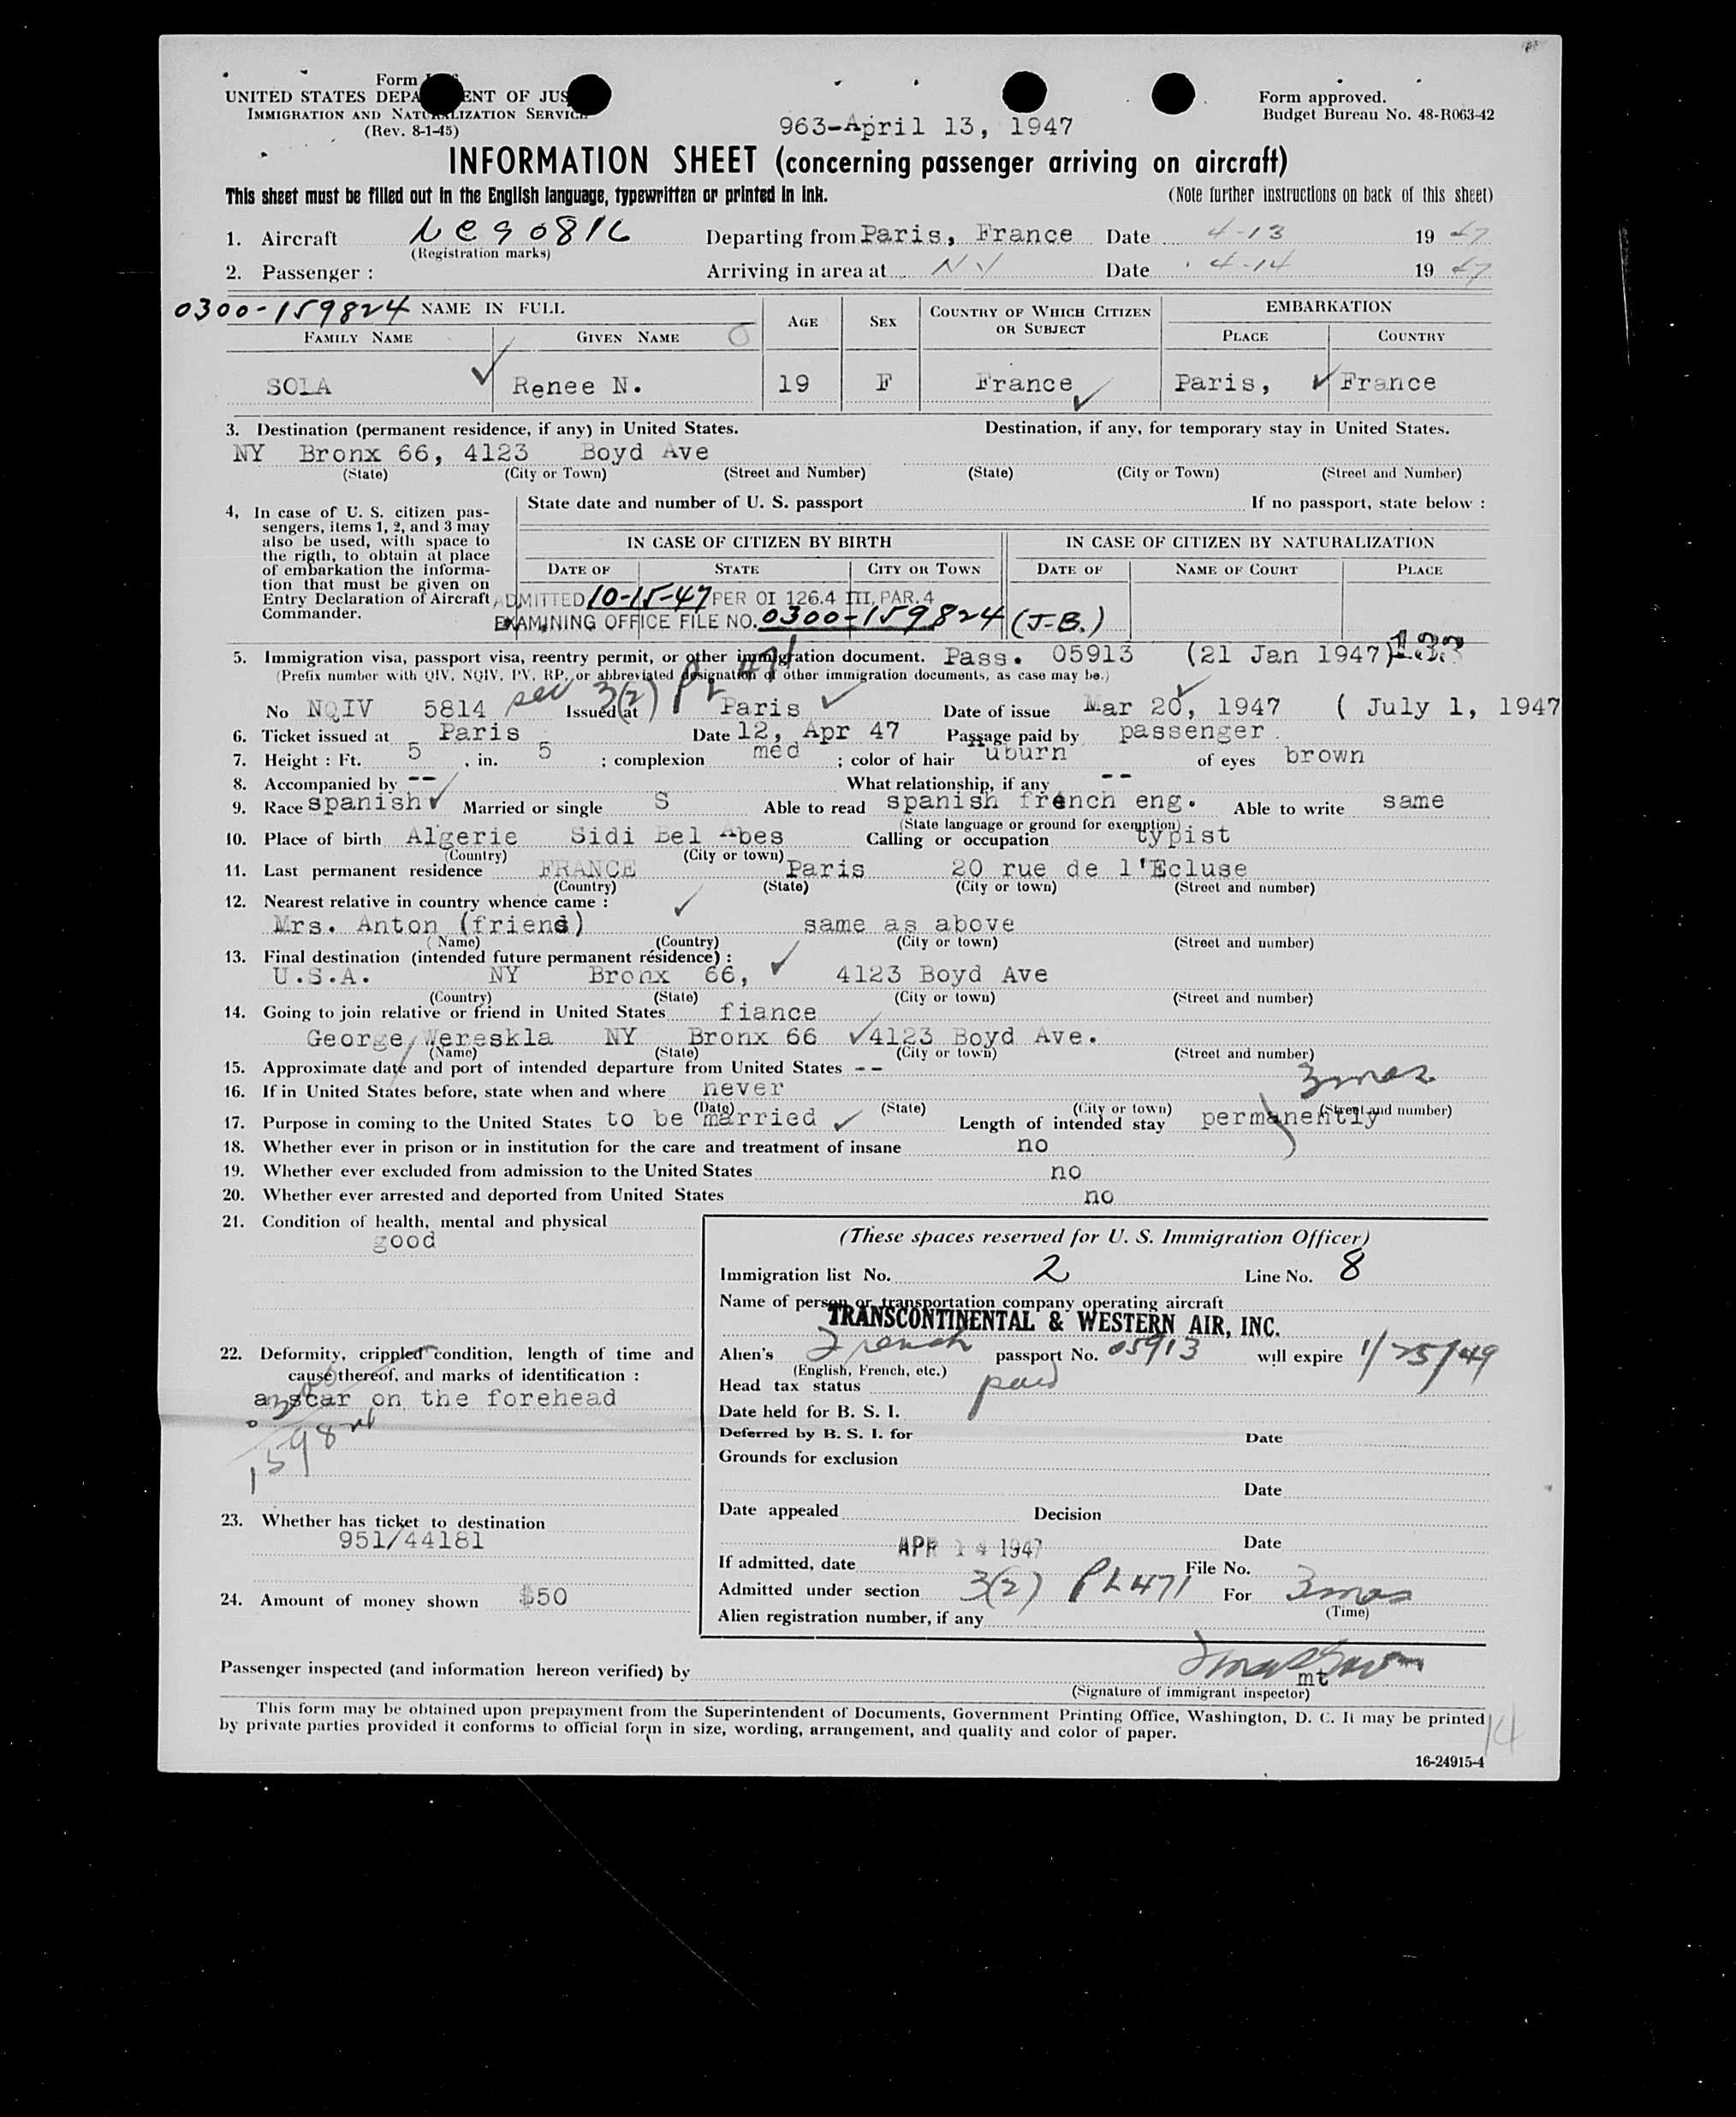 Form
UNITED STATES DEPA ENT OF JUS
IMMIGRATION AND NATURALIZATION SERVICE
(Rev. 8-1-45)
Form approved.
Budget Bureau No. 48-R063-42
963-April 13, 1947
INFORMATION SHEET (concerning passenger arriving on aircraft)
This sheet must be filled out in the English language, typewritten or printed in ink. (Note further instructions on back of this sheet)
1. Aircraft Departing from Paris, France Date 4-13 19 47
(Registration marks)
2. Passenger : Arriving in area at NY Date 4-14 19 47
0300-159824 NAME IN FULL AGE SEX COUNTRY OF WHICH CITIZEN OR SUBJECT EMBARKATION
FAMILY NAME GIVEN NAME PLACE COUNTRY
SOLA Renee N. 19 F France Paris, France
3. Destination (permanent residence, if any) in United States. Destination, if any, for temporary stay in United States.
NY Bronx 66, 4123 Boyd Ave
(State) (City or Town) (Street and Number) (State) (City or Town) (Street and Number)
4, In case of U. S. citizen pas-
sengers, items 1, 2, and 3 may
also be used, with space to
the rigth, to obtain at place
of embarkation the informa-
tion that must be given on
Entry Declaration of Aircraft
Commander.
State date and number of U. S. passport If no passport, state below :
IN CASE OF CITIZEN BY BIRTH IN CASE OF CITIZEN BY NATURALIZATION
DATE OF STATE CITY OR TOWN DATE OF NAME OF COURT PLACE
ADMITTED 10-15-47 PER OI 126.4 III, PAR. 4
EXAMINING OFFICE FILE NO. 0300-159824 (J.B.)
5. Immigration visa, passport visa, reentry permit, or other immigration document. Pass. 05913 (21 Jan 1947)
(Prefix number with QIV, NQIV, PV, RP, or abbreviated designation of other immigration documents, as case may be.)
sec 3(2) PL 471
No NQIV 5814 Issued at Paris Date of issue Mar 20, 1947 ( July 1, 1947
6. Ticket issued at Paris Date 12, Apr 47 Passage paid by passenger.
7. Height : Ft. 5 , in. 5 ; complexion med ; color of hair uburn of eyes brown
8. Accompanied by -- What relationship, if any --
9. Race spanish Married or single S Able to read spanish french eng. Able to write same
(State language or ground for exemption)
10. Place of birth Algerie Sidi Bel Abes Calling or occupation typist
(Country) (City or town)
11. Last permanent residence FRANCE Paris 20 rue de l'Ecluse
(Country) (State) (City or town) (Street and number)
12. Nearest relative in country whence came :
Mrs. Anton (friend) same as above
(Name) (Country) (City or town) (Street and number)
13. Final destination (intended future permanent résidence) :
U.S.A. NY Bronx 66, 4123 Boyd Ave
(Country) (State) (City or town) (Street and number)
14. Going to join relative or friend in United States fiance
George Wereskla NY Bronx 66 4123 Boyd Ave.
(Name) (State) (City or town) (Street and number)
15. Approximate date and port of intended departure from United States --
16. If in United States before, state when and where never 3mos
(Date) (State) (City or town) (Street and number)
17. Purpose in coming to the United States to be married Length of intended stay permanently
18. Whether ever in prison or in institution for the care and treatment of insane no
19. Whether ever excluded from admission to the United States no
20. Whether ever arrested and deported from United States no
21. Condition of health, mental and physical
good
22. Deformity, crippled condition, length of time and
cause thereof, and marks of identification :
a scar on the forehead
23. Whether has ticket to destination
951/44181
24. Amount of money shown $50
(These spaces reserved for U. S. Immigration Officer)
Immigration list No. 2 Line No. 8
Name of person or transportation company operating aircraft
TRANSCONTINENTAL & WESTERN AIR, INC.
Alien's French passport No. 05913 will expire 1/25/49
(English, French, etc.)
Head tax status paid
Date held for B. S. I.
Deferred by B. S. I. for Date
Grounds for exclusion
Date
Date appealed Decision
Date
APR 14 1947
If admitted, date File No.
Admitted under section 3(2) PL 471 For 3mos
(Time)
Alien registration number, if any
Passenger inspected (and information hereon verified) by
mt
(Signature of immigrant inspector)
This form may be obtained upon prepayment from the Superintendent of Documents, Government Printing Office, Washington, D. C. It may be printed
by private parties provided it conforms to official form in size, wording, arrangement, and quality and color of paper.
14
16-24915-4